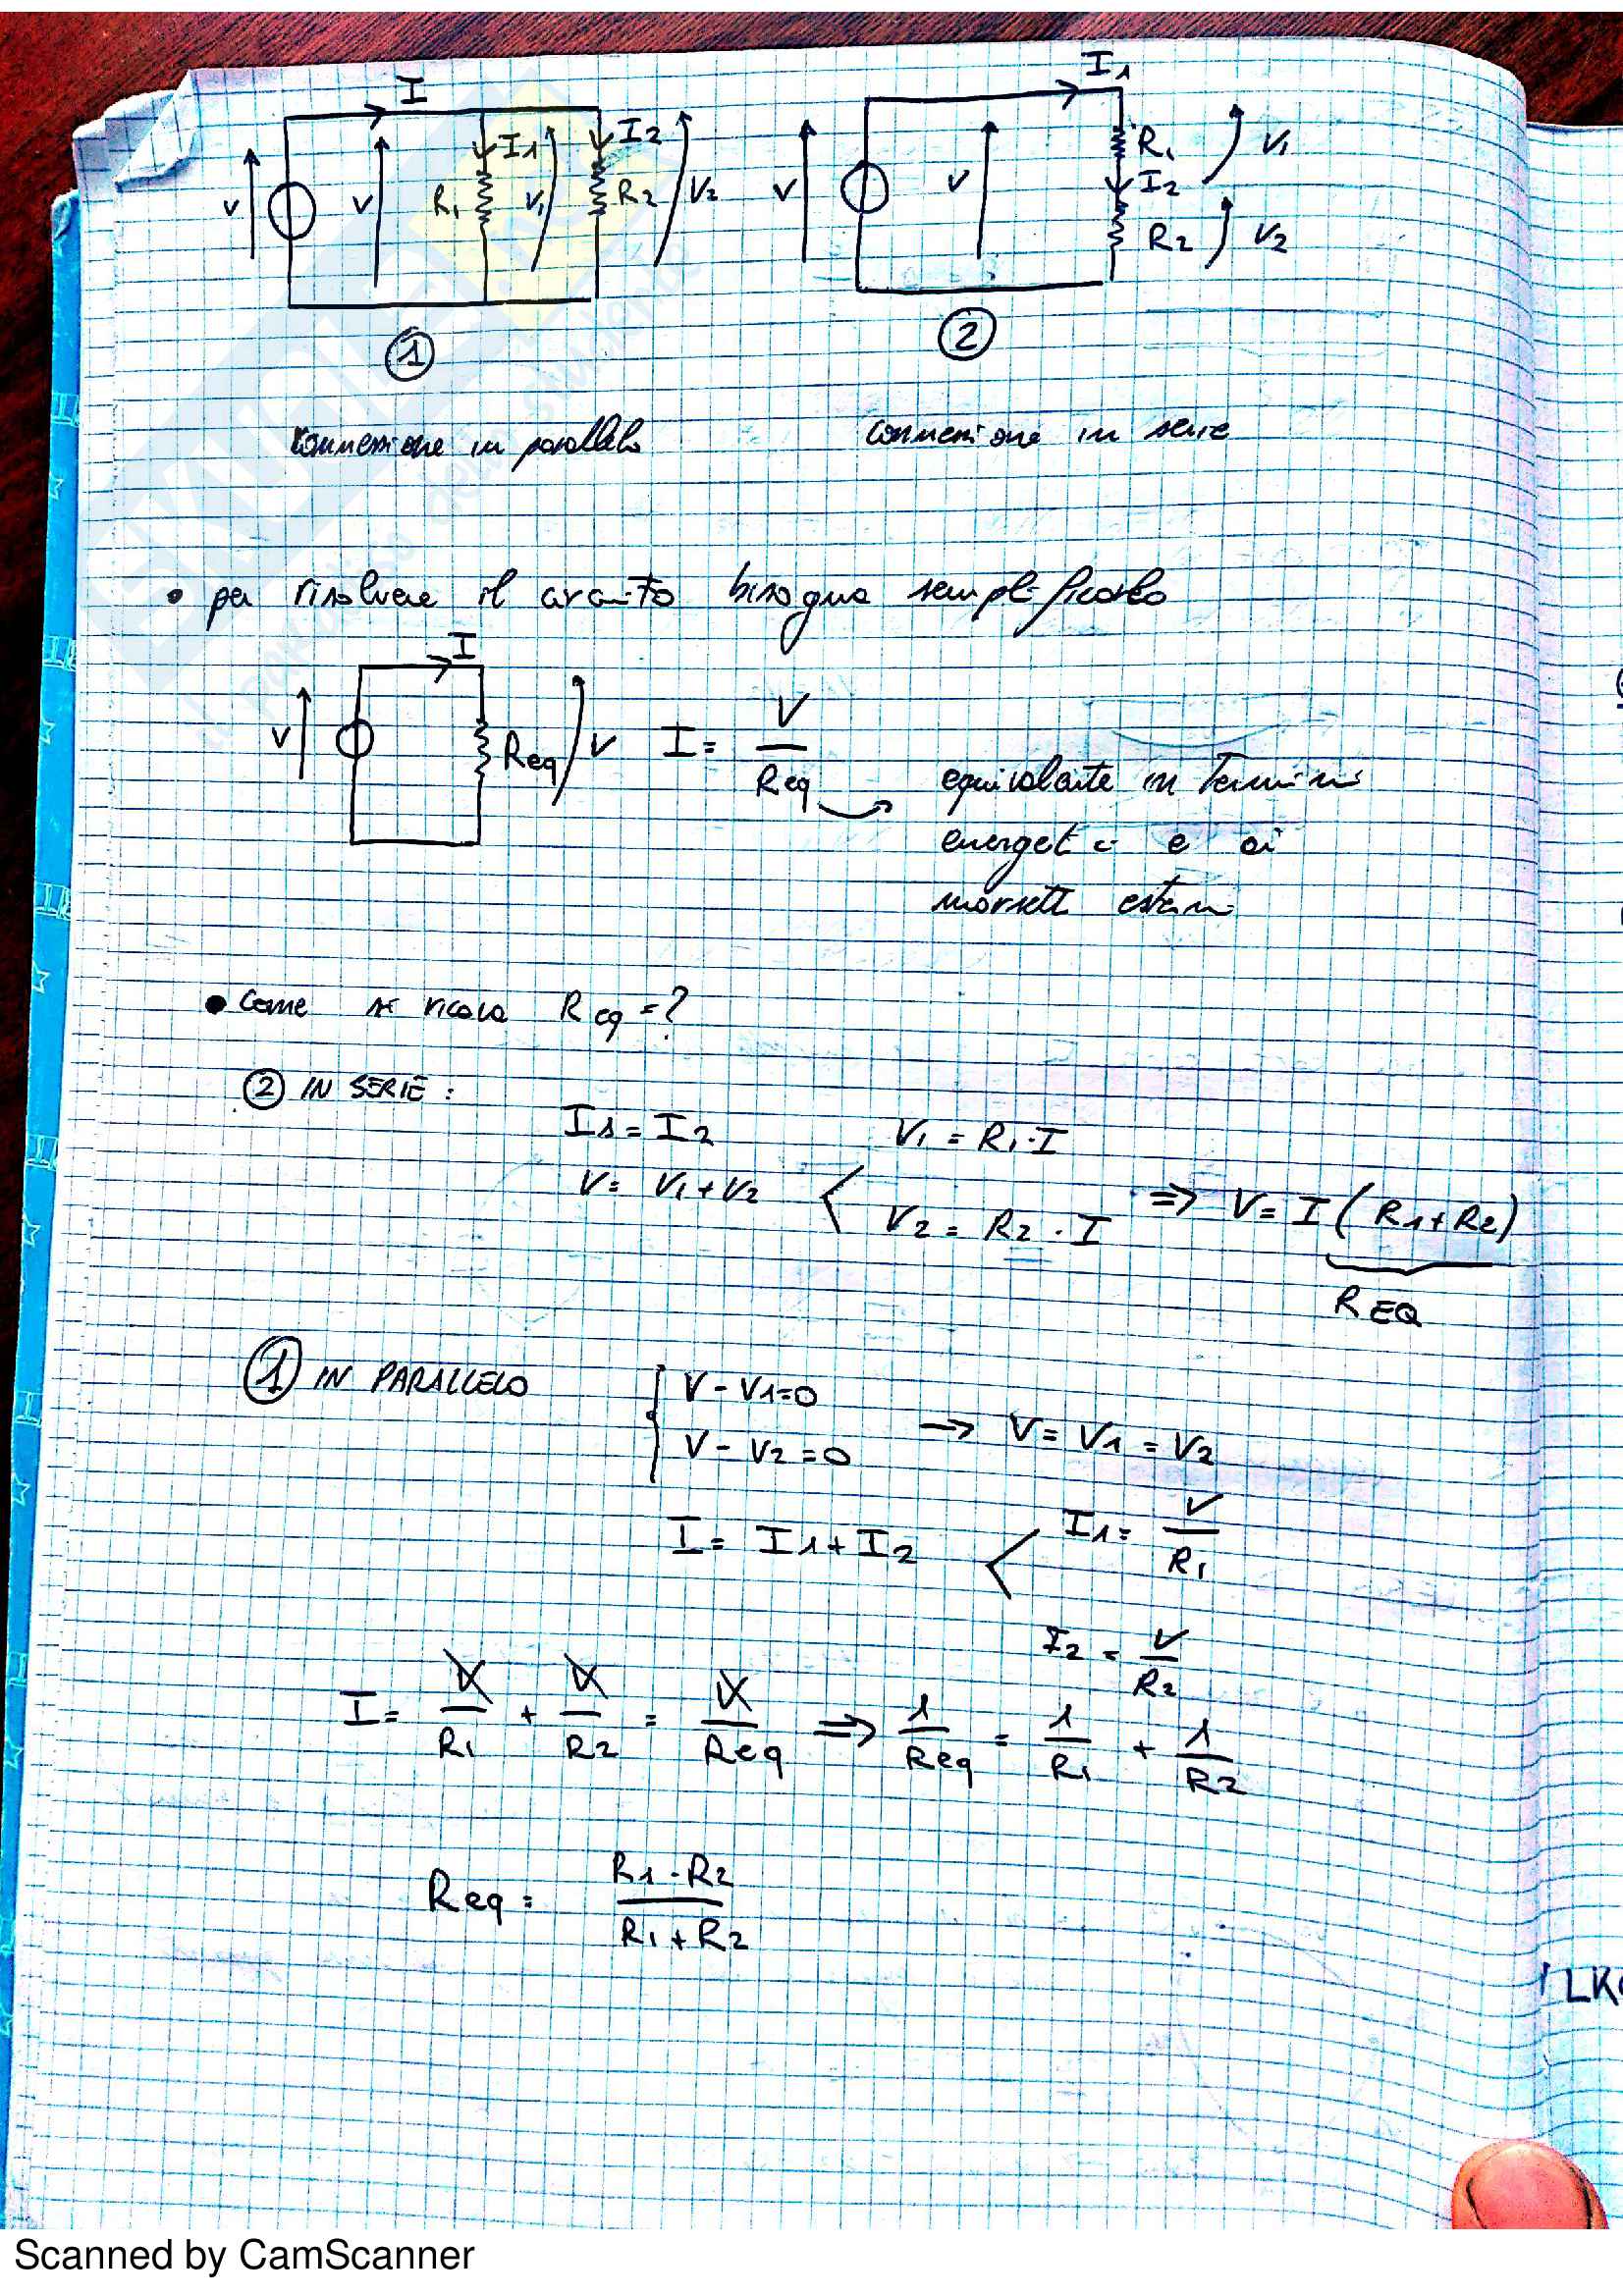 I
V
V
R1
I1
V1
I2
R2
V2
1
connessione in parallelo
I1
V
V
R1
I2
R2
V1
V2
2
connessione in serie
• per risolvere il circuito bisogna semplificarlo
I
V
Req
V
I = V / Req
equivalente in Termini
energetici e ai
morsetti esterni
• Come si ricava Req = ?
2 IN SERIE :
I1 = I2
V = V1 + V2
V1 = R1 · I
V2 = R2 · I
=> V = I ( R1 + R2 )
REQ
1 IN PARALLELO
V - V1 = 0
V - V2 = 0
→ V = V1 = V2
I = I1 + I2
I1 = V / R1
I2 = V / R2
I = V / R1 + V / R2 = V / Req => 1 / Req = 1 / R1 + 1 / R2
Req = R1 · R2 / R1 + R2
Scanned by CamScanner